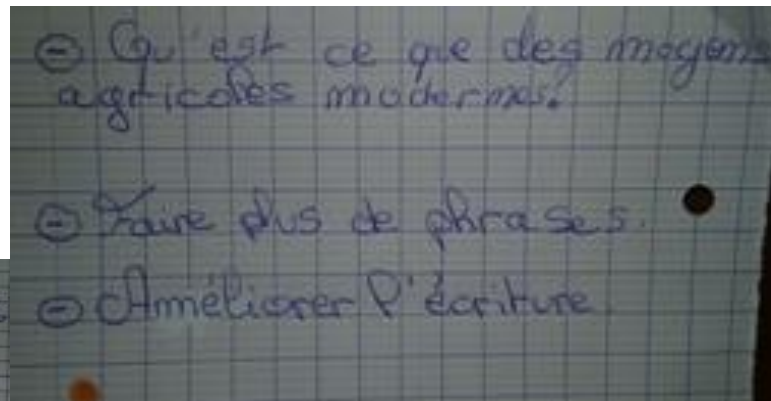 ⊖ Qu'est ce que des moyens
agricoles modernes?
⊖ Faire plus de phrases.
⊖ Améliorer l'écriture